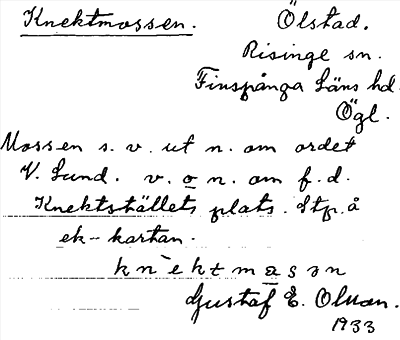 Knektmossen. Ölstad.
Risinge sn.
Finspånga Läns hd.
Ögl.
Mossen s. v. ut n. om ordet
V. Lund. v. o n. om f. d.
Knektställets plats. Stp. å
ek-kartan.
knèktmasən
Gustaf E. Olsson.
1933